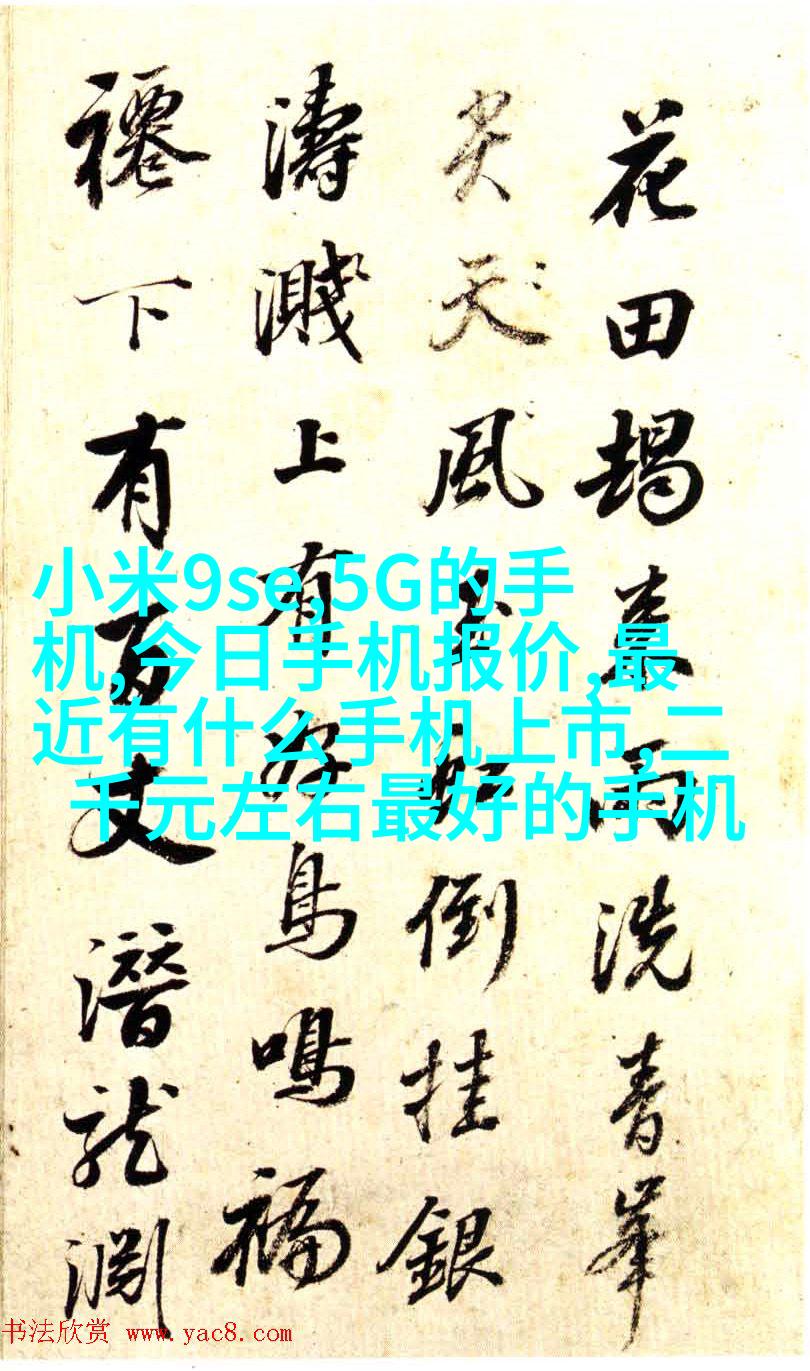 花田朅来雨洗青峯
天風玉虹倒挂銀
濤濺上有好鳥鳴福
下有百丈潛龍淵
小米9se,5G的手
机,今日手机报价,最
近有什么手机上市,二
千元左右最好的手机
书法欣赏 www.yac8.com